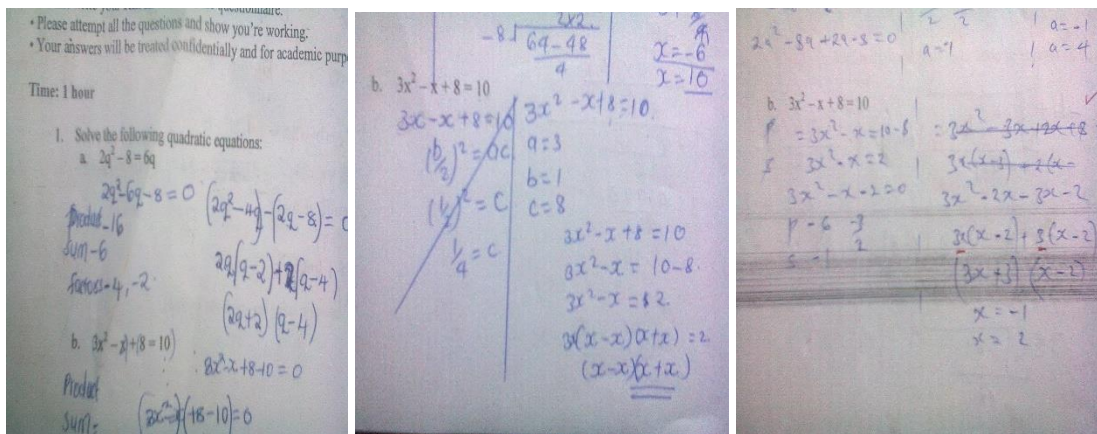 • Please attempt all the questions and show you're working.
• Your answers will be treated confidentially and for academic purp
Time: 1 hour
1. Solve the following quadratic equations:
a. 2q² – 8 = 6q
2q²-6q-8=0
Product -16
Sum -6
factors -4, -2
(2q²-4q)-(2q-8)=0
2q(q-2)+2(q-4)
(2q+2)(q-4)
b. 3x² – x + (8 = 10)
3x²-x+8-10=0
Product
Sum =
(3x²-x)(+8-10)=0
-8
64-48
4
x=-6
x=10
b. 3x² – x + 8 = 10
3x-x+8=10
(b/2)²=C
(1/2)²=C
1/4=C
3x²-x+8=10
a=3
b=1
c=8
3x²-x+8=10
3x²-x=10-8
3x²-x=2
3x(x-x)(x+x)=2
(x-x)(x+x)
2q²-8q+2q-8=0
a=-1
a=4
b. 3x² – x + 8 = 10
P
=3x²-x=10-8
S
3x²-x=2
3x²-x-2=0
P -6 -3
S -1 2
=3x²-3x+2x+8
3x(x-3)+2(x-
3x²-2x-3x-2
3x(x-2)+3(x-2)
(3x+3)(x-2)
x=-1
x=2